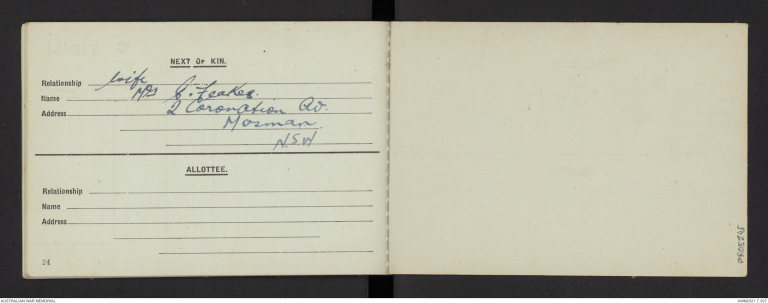 NEXT OF KIN.
Relationship wife
Name Mrs C. Feakes.
Address 2 Coronation Av.
Mosman
N.S.W
ALLOTTEE.
Relationship
Name
Address
24
PR05245
AUSTRALIAN WAR MEMORIAL
AWM2021.7.107